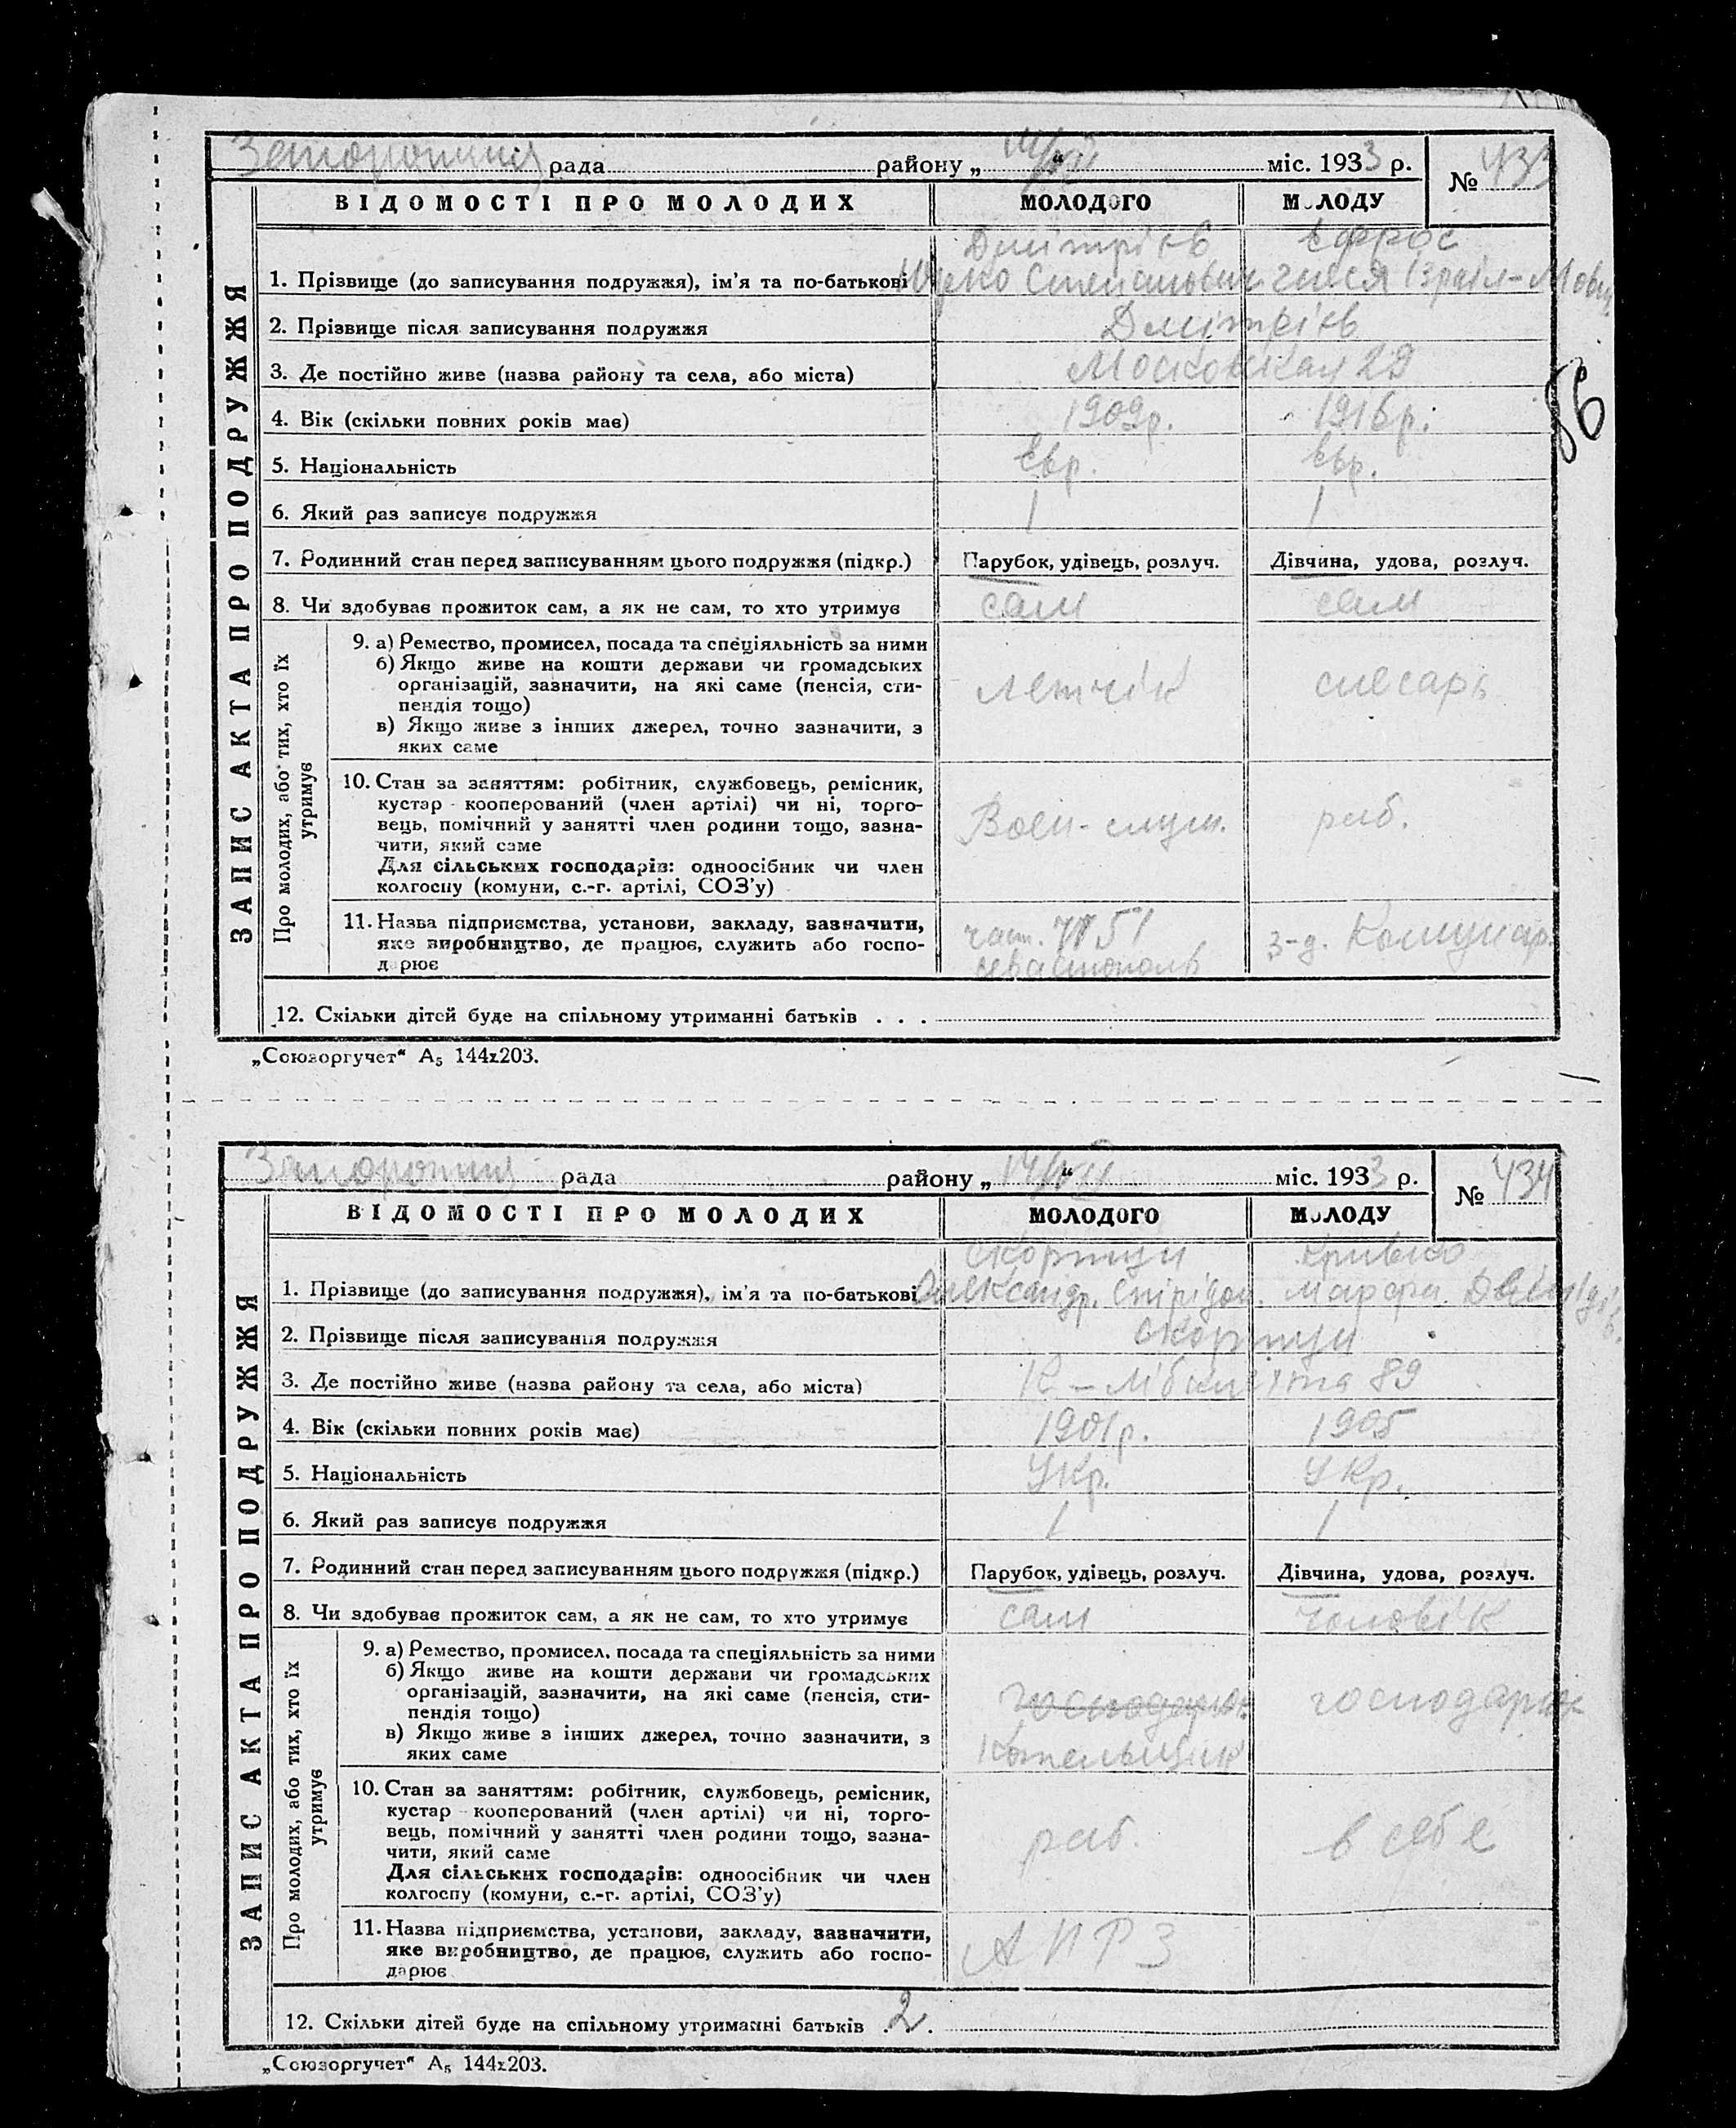 рада району „ 14/XII “ міс. 1933 р. № 433
ВІДОМОСТІ ПРО МОЛОДИХ МОЛОДОГО МОЛОДУ
ЗАПИС АКТА ПРО ПОДРУЖЖЯ
Дмітрієв Ефрос
1. Прізвище (до записування подружжя), ім'я та по-батькові Степанович
2. Прізвище після записування подружжя Дмітрієв
3. Де постійно живе (назва району та села, або міста) Московская 29
4. Вік (скільки повних років має) 1909р. 1916р.
86
5. Національність Євр. Євр.
6. Який раз записує подружжя 1 1
7. Родинний стан перед записуванням цього подружжя (підкр.) Парубок, удівець, розлуч. Дівчина, удова, розлуч.
8. Чи здобуває прожиток сам, а як не сам, то хто утримує сам сам
Про молодих, або тих, хто їх утримує
9. а) Ремество, промисел, посада та спеціяльність за ними
б) Якщо живе на кошти держави чи громадських
організацій, зазначити, на які саме (пенсія, сти-
пендія тощо)
летчік слесарь
в) Якщо живе з інших джерел, точно зазначити, з
яких саме
10. Стан за заняттям: робітник, службовець, ремісник,
кустар - кооперований (член артілі) чи ні, торго-
вець, помічний у занятті член родини тощо, зазна-
чити, який саме
Воен-служ. раб.
Для сільських господарів: одноосібник чи член
колгоспу (комуни, с.-г. артілі, СОЗ'у)
11. Назва підприємства, установи, закладу, зазначити,
яке виробництво, де працює, служить або госпо-
дарює
част. 51 з-д. Комунар.
севастополь
12. Скільки дітей буде на спільному утриманні батьків . . .
„Союзоргучет“ А₅ 144x203.
рада району „ 14/XII “ міс. 1933 р. № 434
ВІДОМОСТІ ПРО МОЛОДИХ МОЛОДОГО МОЛОДУ
ЗАПИС АКТА ПРО ПОДРУЖЖЯ
1. Прізвище (до записування подружжя), ім'я та по-батькові Олександр. Спірідон. Марфа
2. Прізвище після записування подружжя
3. Де постійно живе (назва району та села, або міста) К-Лібкнехта 89
4. Вік (скільки повних років має) 1901р. 1905
5. Національність Укр. Укр.
6. Який раз записує подружжя 1 1
7. Родинний стан перед записуванням цього подружжя (підкр.) Парубок, удівець, розлуч. Дівчина, удова, розлуч.
8. Чи здобуває прожиток сам, а як не сам, то хто утримує сам чоловік
Про молодих, або тих, хто їх утримує
9. а) Ремество, промисел, посада та спеціяльність за ними
б) Якщо живе на кошти держави чи громадських
організацій, зазначити, на які саме (пенсія, сти-
пендія тощо)
в) Якщо живе з інших джерел, точно зазначити, з
яких саме
Котельщик
10. Стан за заняттям: робітник, службовець, ремісник,
кустар - кооперований (член артілі) чи ні, торго-
вець, помічний у занятті член родини тощо, зазна-
чити, який саме
раб. в себе
Для сільських господарів: одноосібник чи член
колгоспу (комуни, с.-г. артілі, СОЗ'у)
11. Назва підприємства, установи, закладу, зазначити,
яке виробництво, де працює, служить або госпо-
дарює
АПРЗ
12. Скільки дітей буде на спільному утриманні батьків . 2 .
„Союзоргучет“ А₅ 144x203.